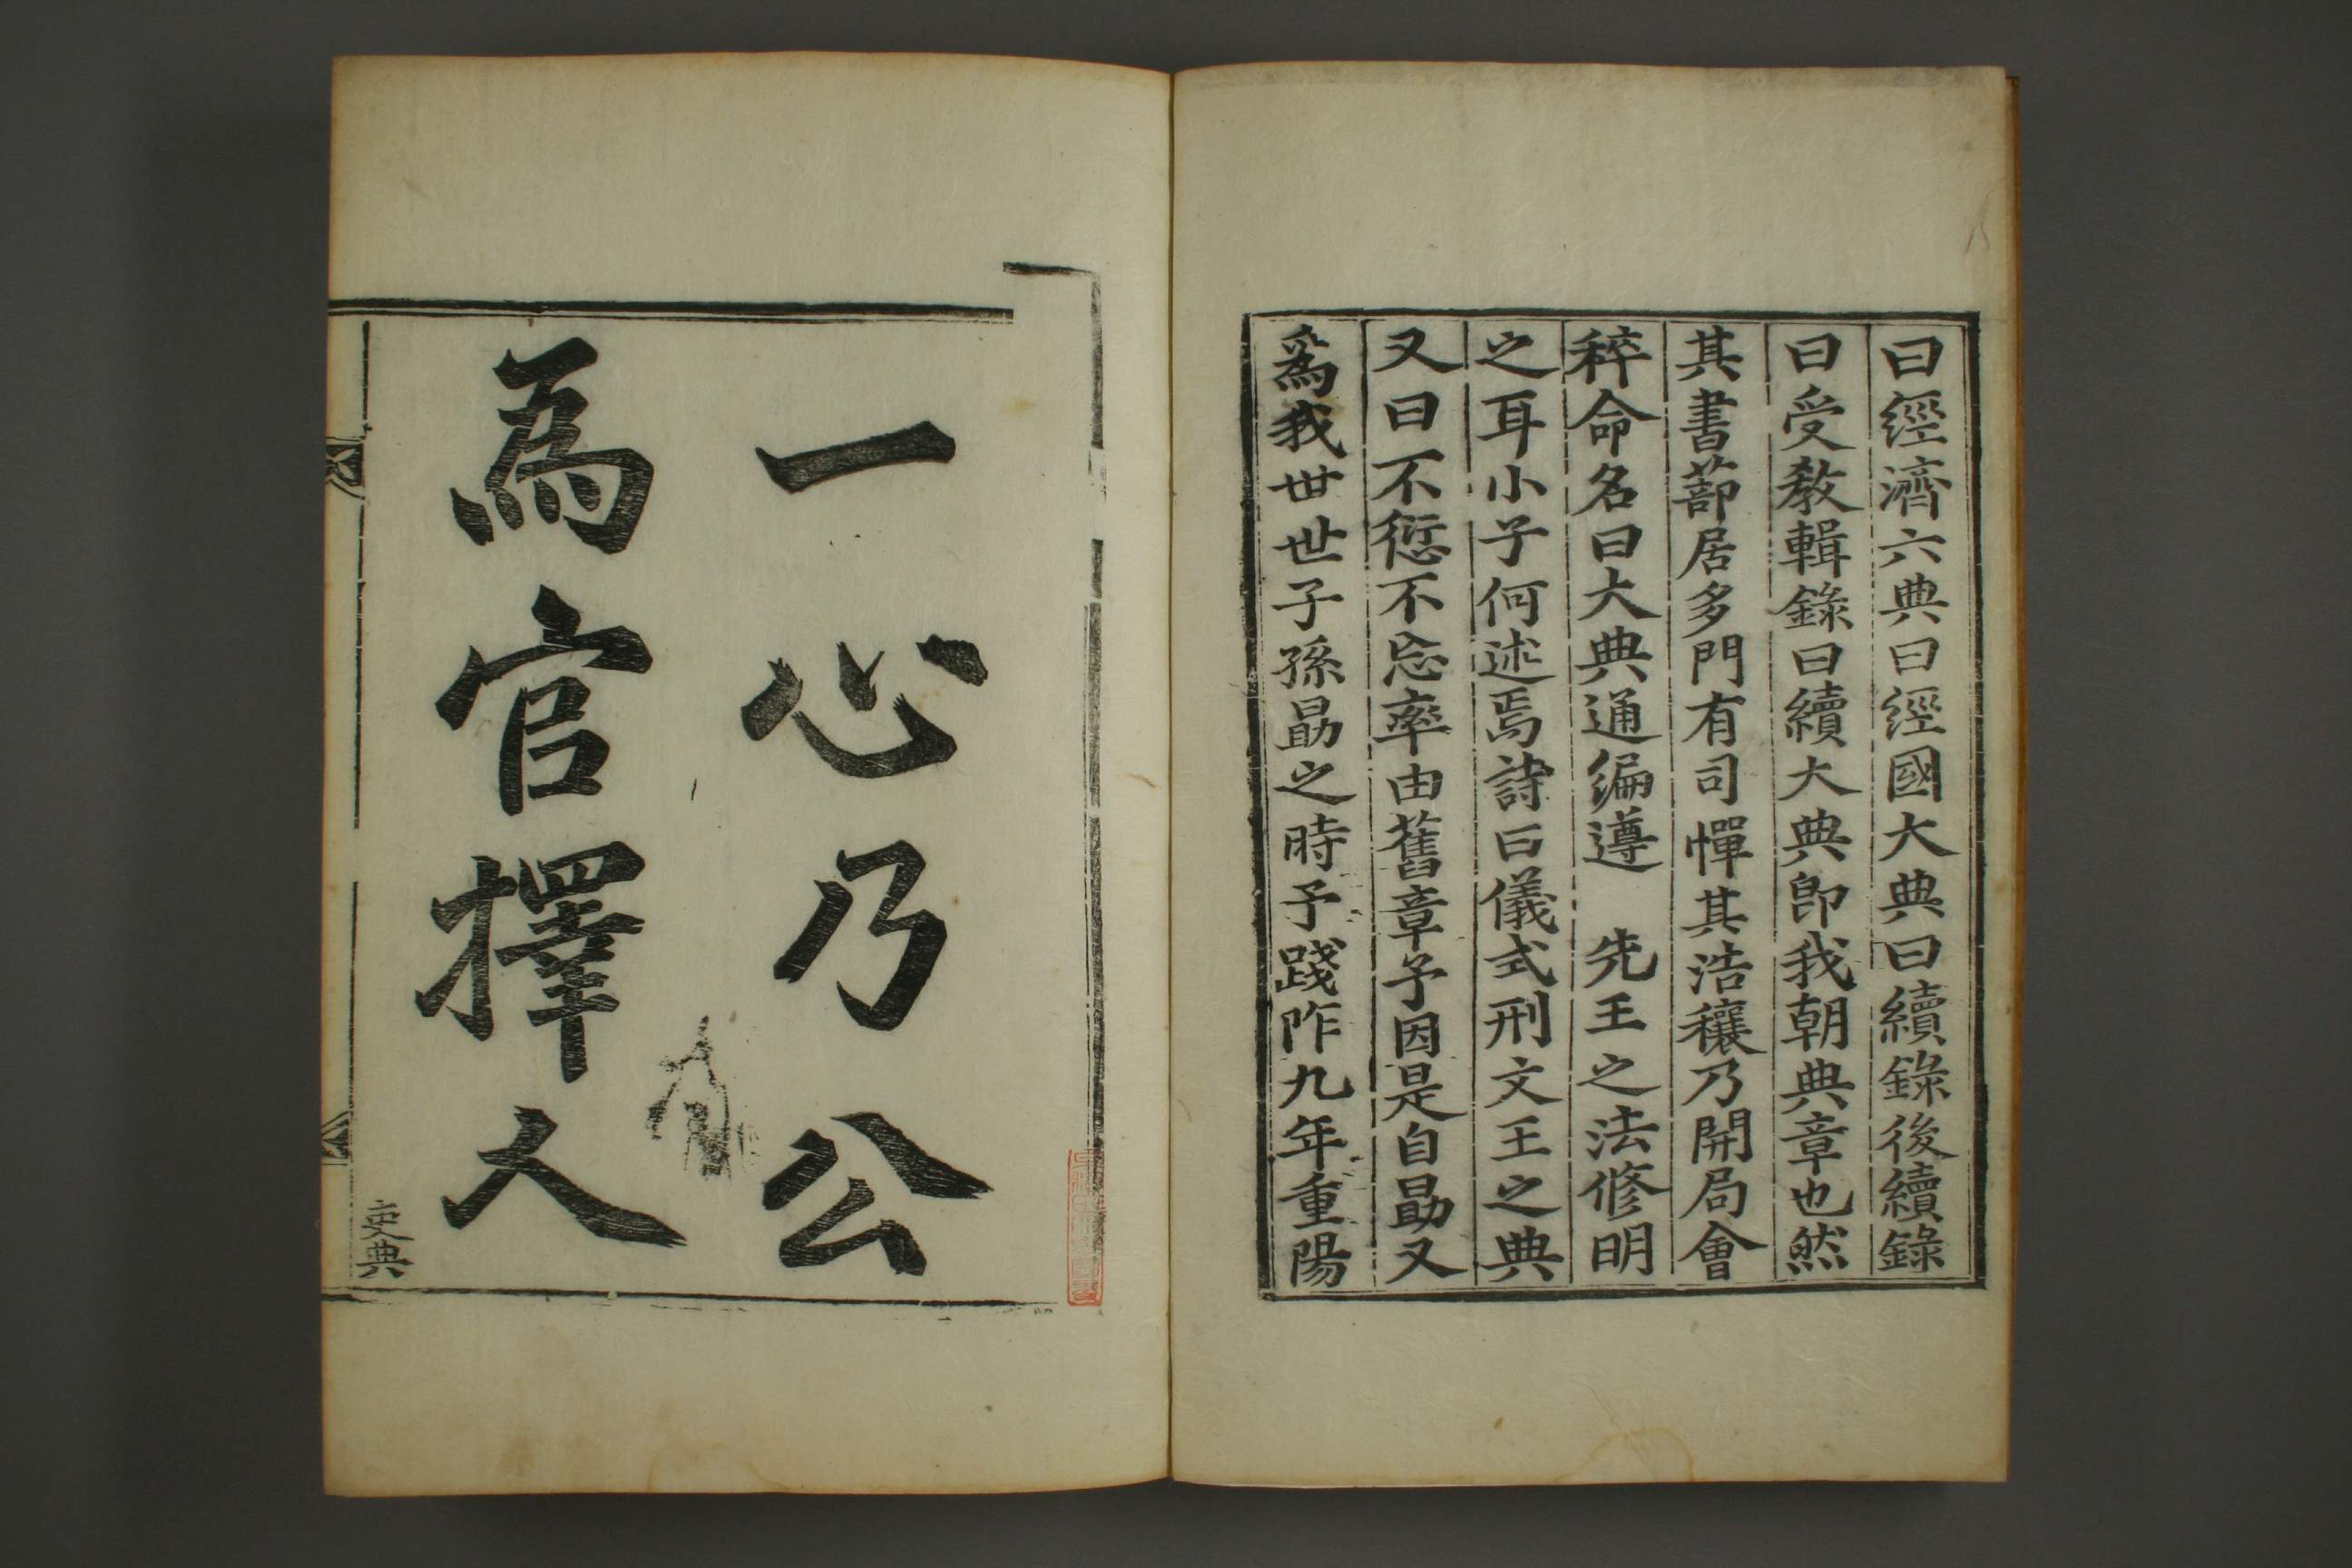 曰經濟六典曰經國大典曰續錄後續錄
曰受敎輯錄曰續大典卽我朝典章也然
其書蔀居多門有司憚其浩穰乃開局會
稡命名曰大典通編遵　先王之法修明
之耳小子何述焉詩曰儀式刑文王之典
又曰不愆不忘率由舊章予因是自勗又
爲我世世子孫勗之時予踐阼九年重陽
一心乃公
爲官擇人
吏典